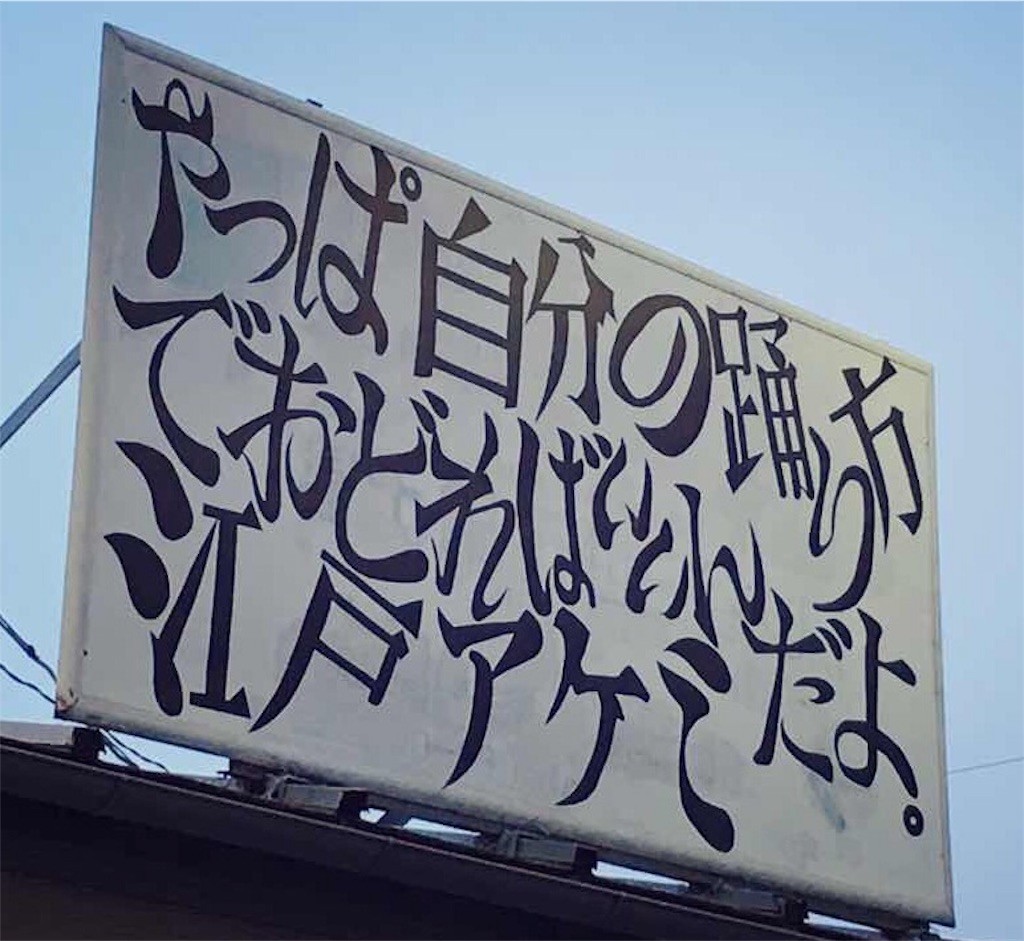 やっぱ自分の踊り方
でおどればいいんだよ。
江戸アケミ